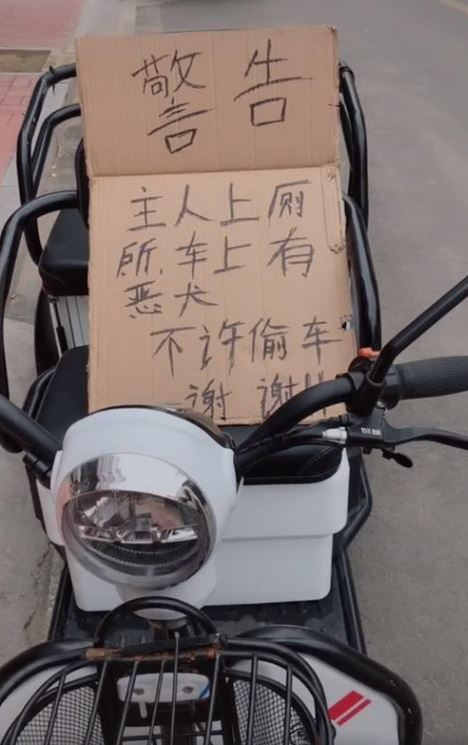 警告
主人上厕
所.车上有
恶犬
不许偷车
谢 谢!!